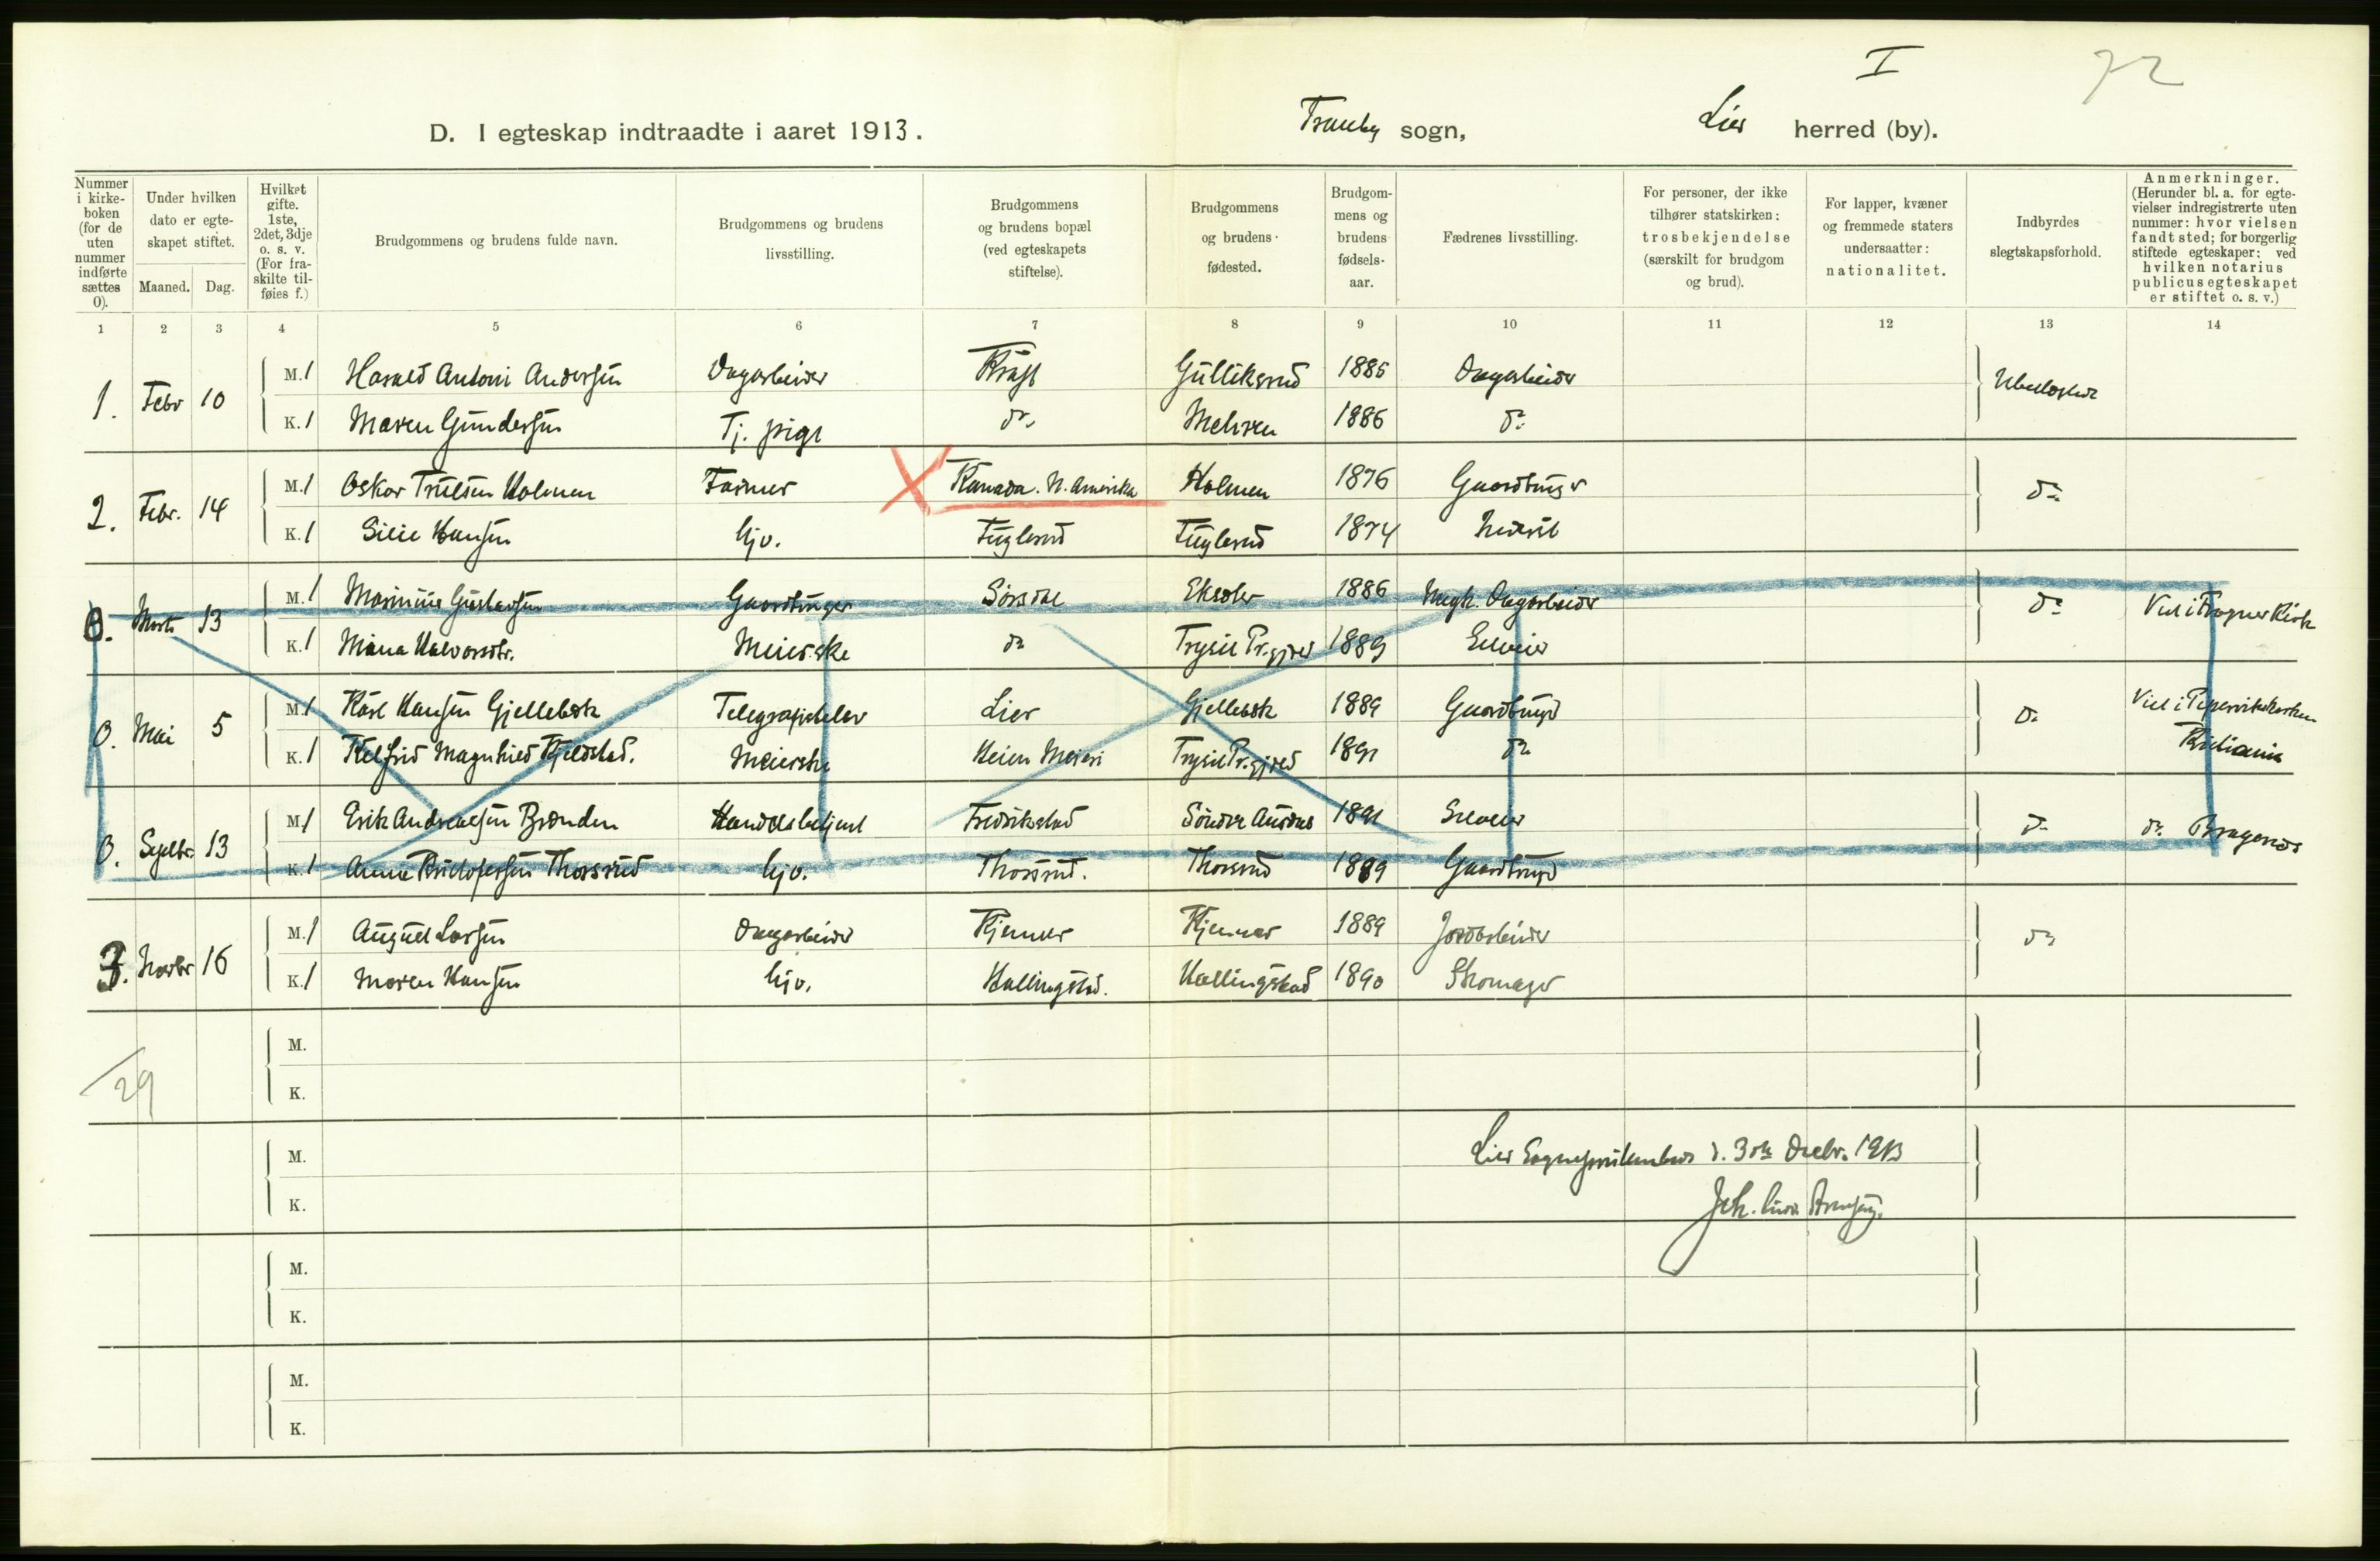 I
72
D. I egteskap indtraadte i aaret 1913.
Tranby sogn, Lier herred (by).
Nummer i kirke-boken (for de uten nummer indførte sættes 0).
Under hvilken dato er egte-skapet stiftet.
Maaned. Dag.
Hvilket gifte. 1ste, 2det, 3dje o. s. v. (For fra-skilte til-føies f.)
Brudgommens og brudens fulde navn.
Brudgommens og brudens livsstilling.
Brudgommens og brudens bopæl (ved egteskapets stiftelse).
Brudgommens og brudens fødested.
Brudgom-mens og brudens fødsels-aar.
Fædrenes livsstilling.
For personer, der ikke tilhører statskirken: trosbekjendelse (særskilt for brudgom og brud).
For lapper, kvæner og fremmede staters undersaatter: nationalitet.
Indbyrdes slegtskapsforhold.
Anmerkninger. (Herunder bl. a. for egte-vielser indregistrerte uten nummer: hvor vielsen fandt sted; for borgerlig stiftede egteskaper: ved hvilken notarius publicus egteskapet er stiftet o. s. v.)
1 2 3 4 5 6 7 8 9 10 11 12 13 14
1. Febr 10 M. 1 Harald Antoni Andersen Dagarbeider Gulliksrud 1885 Dagarbeider Ubeslægtet
K. 1 Maren Gundersen Tj. pige do Mehren 1886 do
2. Febr. 14 M. 1 Oskar Trulsen Holmen Farmer Kanada. N. Amerika Holmen 1876 Gaardbruger do
K. 1 Silie Hansen hjv. Fuglerud Fuglerud 1874
0. Marts 13 M. 1 Marinius Gustavsen Gaardbruger Sørsdal Ekeoler 1886 Dagarbeider do Viet i Fragner Kirk
K. 1 Mina Halvorsdtr. Meierske do Trysil Pr.gjæld 1889 Selveier
0. Mai 5 M. 1 Karl Hansen Gjellebæk Telegrafistelev Lier Gjellebæk 1889 Gaardbruger do Viet i Pipervikskirken
K. 1 Magnhild Kjeldstad. Meierske Heien Meieri Trysil Pr.gjæld 1891 do Kristiania
0. Septbr. 13 M. 1 Erik Andreassen Brænden Handelsbetjent Fredrikstad Søndre Aurdal 1891 Selveier do do Bragernæs
K. 1 Anna Kristofersen Thorsrud hjv. Thorsrud. Thorsrud 1889 Gaardbruger
3. Novbr 16 M. 1 August Larsen Dagarbeider Kjenner Kjenner 1889 Jordarbeider do
K. 1 Maren Hansen hjv. Hallingstad. Hallingstad 1890 Skomager
M.
K.
29
M. Lier Sogneprestembed d. 31te Decbr. 1913
K. Joh.
M.
K.
M.
K.